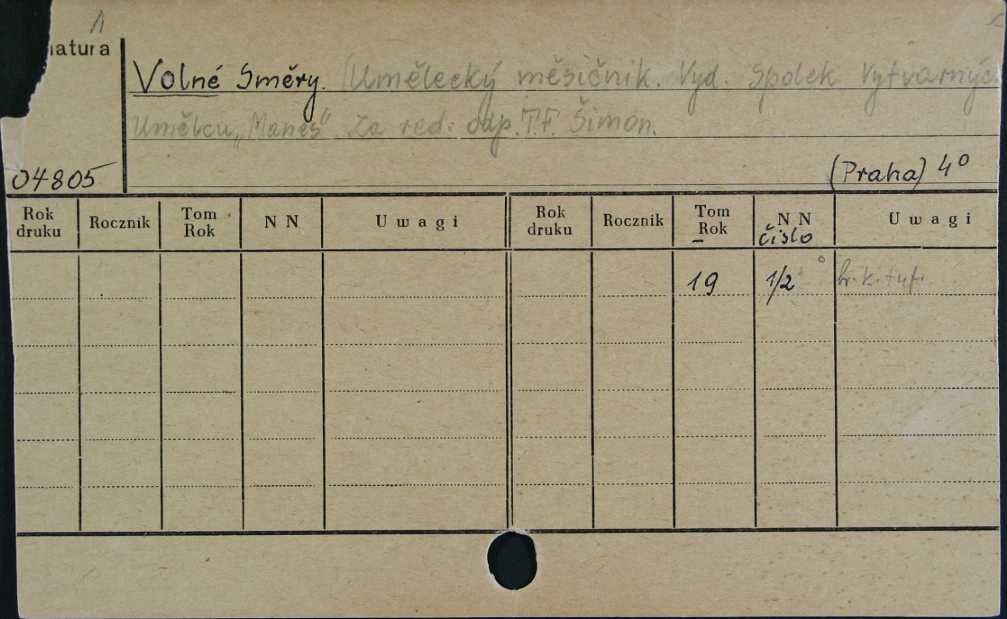 1
natura
Volné Směry. (Umělecký měsičnik. Vyd. Spolek Vytvarných
Umělcu „Manes". Za red. odp. T.F. Šimon.
04805
(Praha) 4°
Rok druku Rocznik Tom Rok N N Uwagi Rok druku Rocznik Tom Rok N N čislo Uwagi
19 1/2 br. k. tyt.